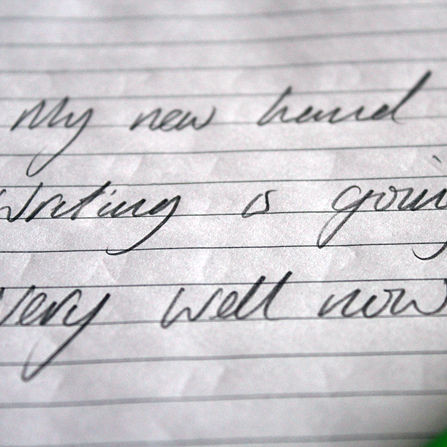 My new hand
Writing is goin
Very well now